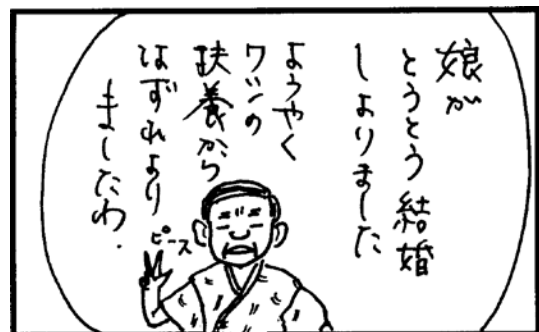 娘が
とうとう結婚
しよりました
ようやく
ワシの
扶養から
はずれより
ましたわ.
ピース